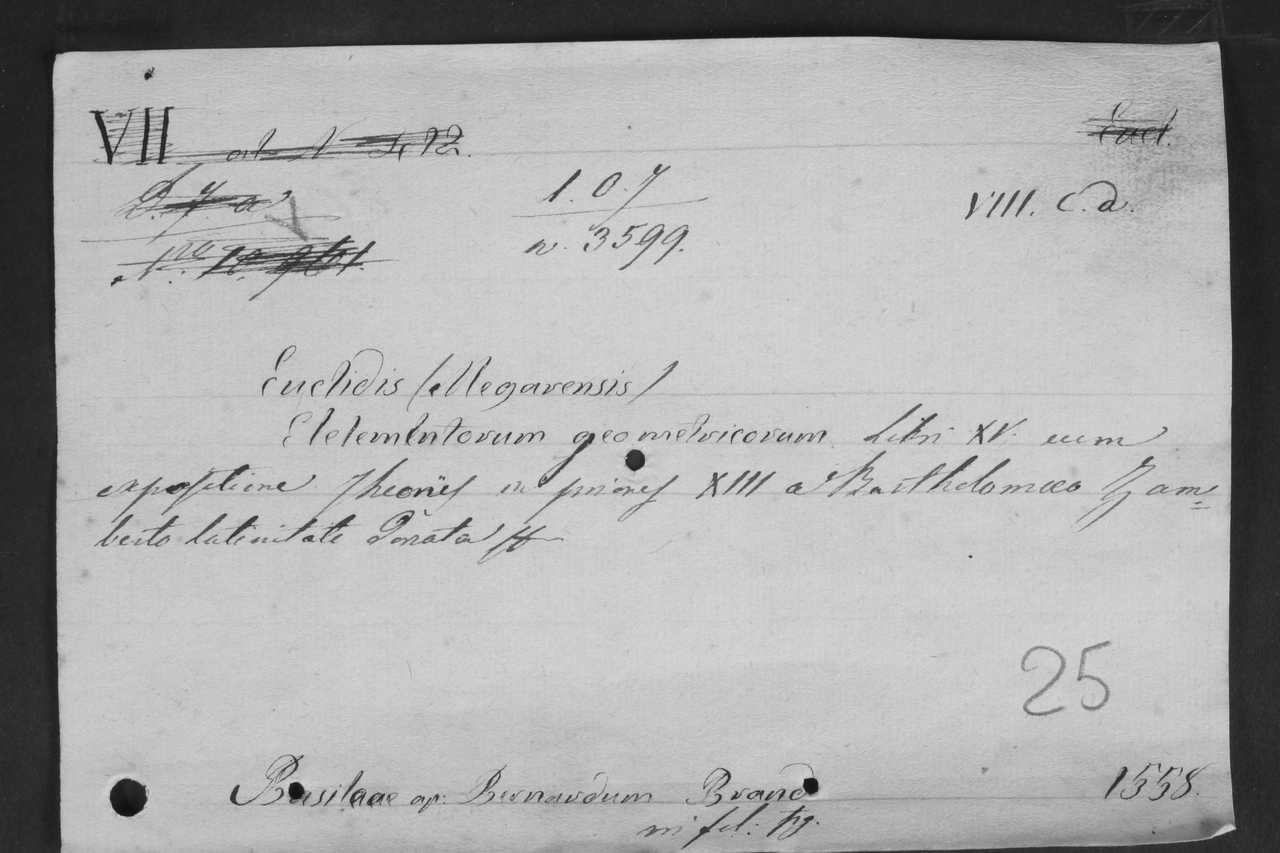 VII
Eucl.
D. 7. a
1. 0. 7
VIII. C. a.
n. 3599.
Euclidis (Megarensis)
Elelementorum geometricorum Libri XV. cum
expositione Theonis in priores XIII a Bartholomaeo Zam=
berto latinitate Donata
25
Basileae ap: Bernardum Brand 1558.
in fol: pg.